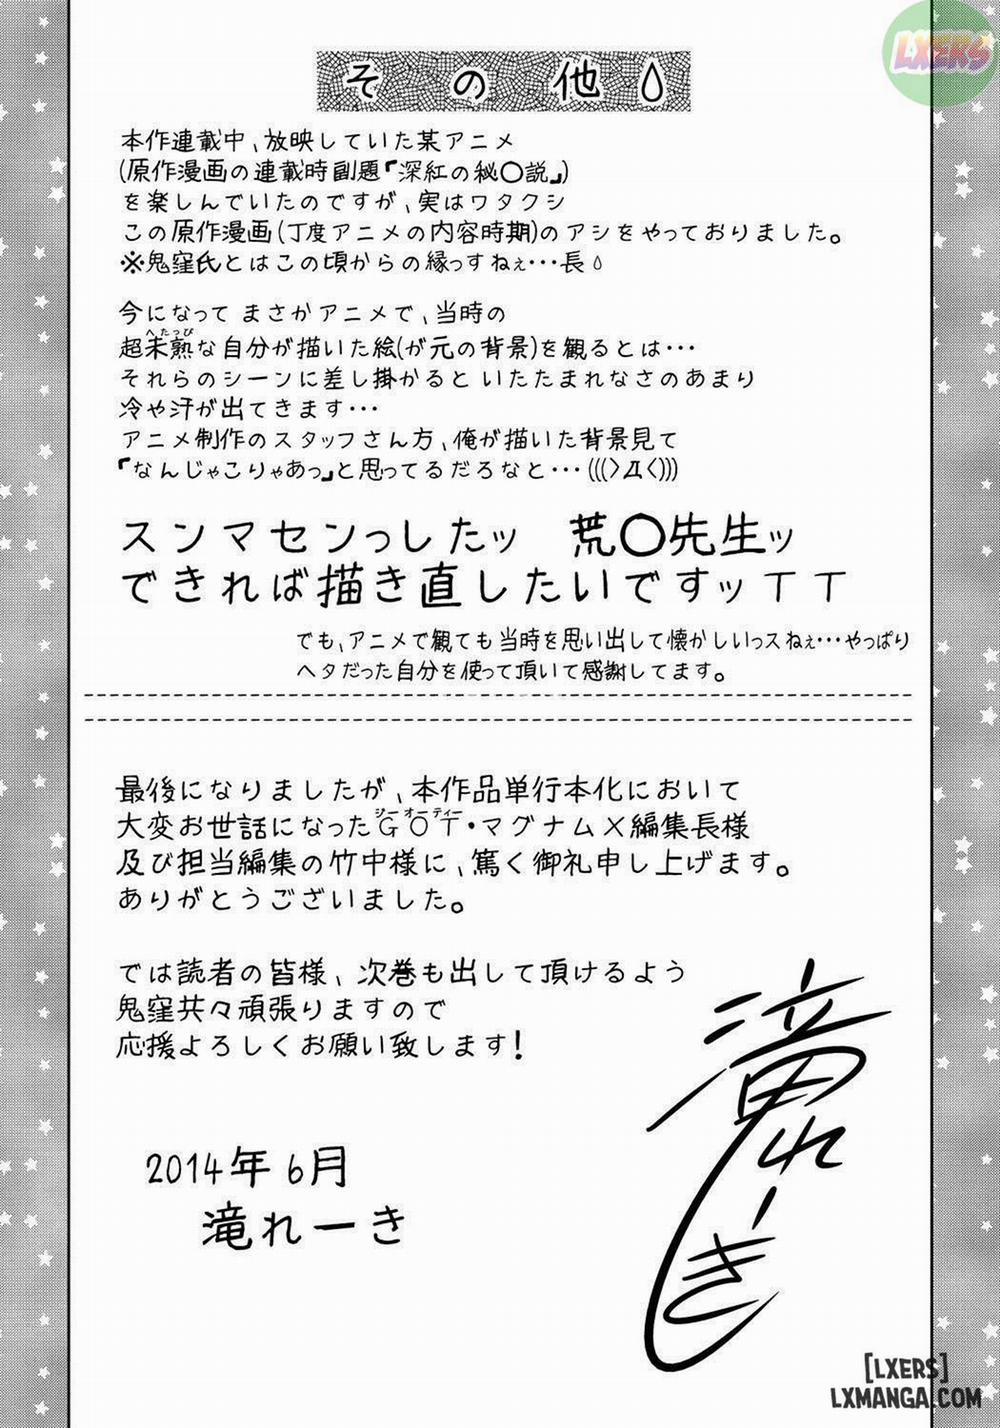 LXERS
その他
本作連載中、放映していた某アニメ
(原作漫画の連載時副題『深紅の秘〇説』)
を楽しんでいたのですが、実はワタクシ
この原作漫画(丁度アニメの内容時期)のアシをやっておりました。
※鬼窪氏とはこの頃からの縁っすねぇ…長
今になって まさかアニメで、当時の
へたっぴ
超未熟な自分が描いた絵(が元の背景)を観るとは…
それらのシーンに差し掛かると いたたまれなさのあまり
冷や汗が出てきます…
アニメ制作のスタッフさん方、俺が描いた背景見て
『なんじゃこりゃあっ』と思ってるだろなと…(((>Д<)))
スンマセンっしたッ 荒〇先生ッ
できれば描き直したいですッTT
でも、アニメで観ても当時を思い出して懐かしいっスねぇ…やっぱり
ヘタだった自分を使って頂いて感謝してます。
最後になりましたが、本作品単行本化において
ジーオーティー
大変お世話になったGOT・マグナム×編集長様
及び担当編集の竹中様に、篤く御礼申し上げます。
ありがとうございました。
では読者の皆様、次巻も出して頂けるよう
鬼窪共々頑張りますので
応援よろしくお願い致します!
2014年6月
滝れーき
滝れーき
[LXERS]
LXMANGA.COM